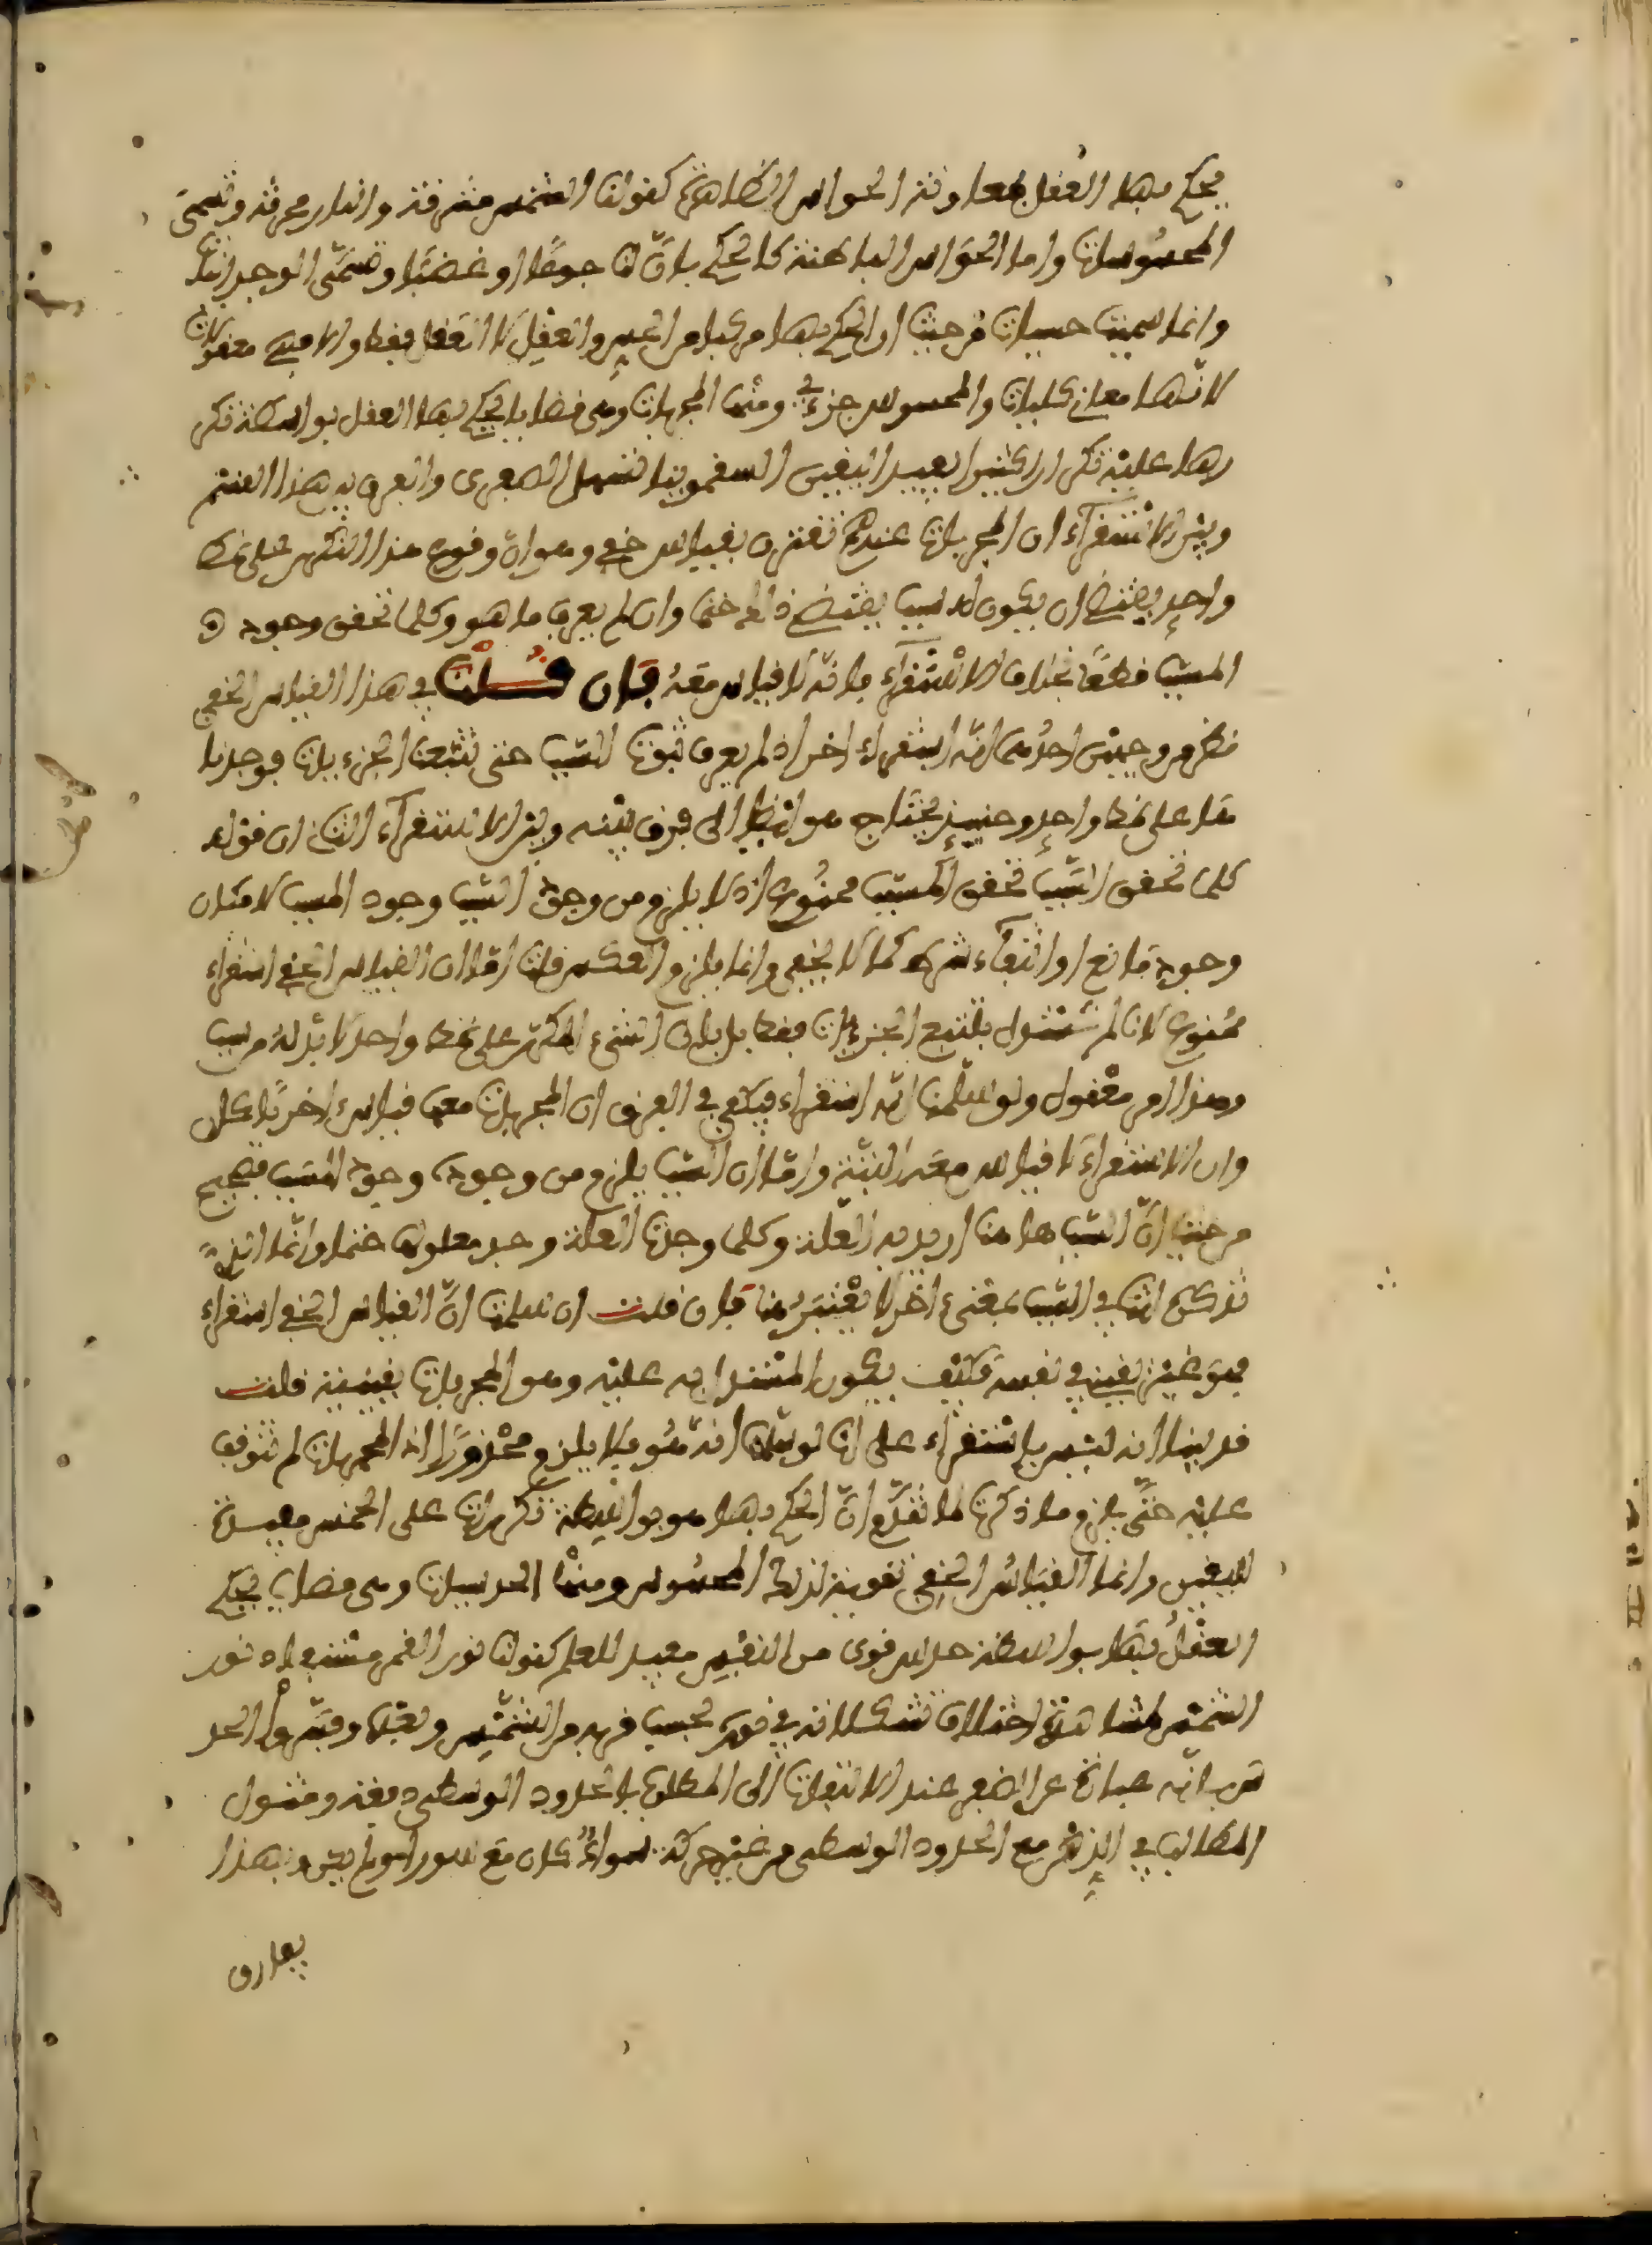 يحكم بها العقل بمعاونة الحواس الظاهرة كقولنا الشمس مشرقة والنار محرقة وتسمى
المحسوسات واما الحواس الباطنة كالحكم بانّ لنا جوعًا او غضبًا وتسمّى الوجدانيات
وانما سميت حسيات من حيث ان الحكم بها مركب من الحس والعقل لا العقل فقط والا فهي معقولات
لانها معان كليات والمحسوس جزءي ومنها المجربات وهي قضايا يحكم بها العقل بواسطة تكر
رها عليه تكرارا كثيرا يفيد اليقين السقمونيا تسهل الصفرى والفرق بين هذا القسم
وبين الاستقرآء ان المجربات عندهم تقترن بقياس خفي وهو انّ وقوع هذا التكرر على نمط
واحد يقتضي ان يكون له سبب يقتضي ذلك حتما وان لم يعرف ما هو وكلما تحقق وجود
المسبب قطعًا بخلاف الاستقرآء فانه لا قياس معه فان قلت في هذا القياس الخفي
نظر من وجهين احدهما انه استقراء اخر اذ لم يعرف ثبوت السبب حتى تتبعنا الجزءيات فوجدنا
ها على نمط واحد وحينئذ يحتاج هو ايضا الى فرق بينه وبين الاستقرآء الثاني ان قوله
كلما تحقق السبب تحقق المسبب ممنوع اذ لا يلزم من وجود السبب وجود المسبب لامكان
وجود مانع او انتفآء شرط كما لا يخفى وانما يلزم العكس قلت امّا ان القياس الخفي استقراء
ممنوع لانا لم نستدل بتتبع الجزءيات فقط بل بان الشيء المتكرر على نمط واحد لا بد له من سبب
وهذا امر معقول ولو سلمنا انه استقراء فيكفي في الفرق ان المجربات معها قياس اخر باطل
وان الاستقراء لا قياس معه البتة وامّا ان السبب يلزم من وجوده وجود المسبب فصحيح
من حيث انّ السبب هاهنا اريد به العلة وكلما وجدت العلة وجد معلولها حتما وانما الذي
تذكره انت في السبب بمعنى اخر لا يعتبر هنا فان قلت ان سلمنا انّ القياس الخفي استقراء
فهو غير يقيني في نفسه فكيف يكون المستدل به عليه وهو المجربات يقينية قلت
قد بينا انه ليس باستقراء على انا لو سلمنا انه هو فلا يلزم محذورًا لان المجربات لم تتوقف
عليه حتّى يلزم ما ذكرت لما تقدّم انّ الحكم بها هو بواسطة تكررها على الحس مفيدة
لليقين وانما القياسُ الخفي تقوية لذلك المحسوس ومنها الحدسيات وهي قضايا يحكم
العقل بها بواسطة حدس قوي من النفس مفيد للعلم كقولنا نور القمر مستفاد من نور
الشمس لمشاهدة اختلاف تشكلاته في نوره بحسب قربه من الشمس وبعده وفسروا الحد
س بانه عبارة عن الظفر عند الالتفات الى المطالب بالحدود الوسطى دفعة ومثول
المطالب في الذهن مع الحدود الوسطى من غير حركة سواء كان مع شور ام لم يكن وبهذا
يفارق